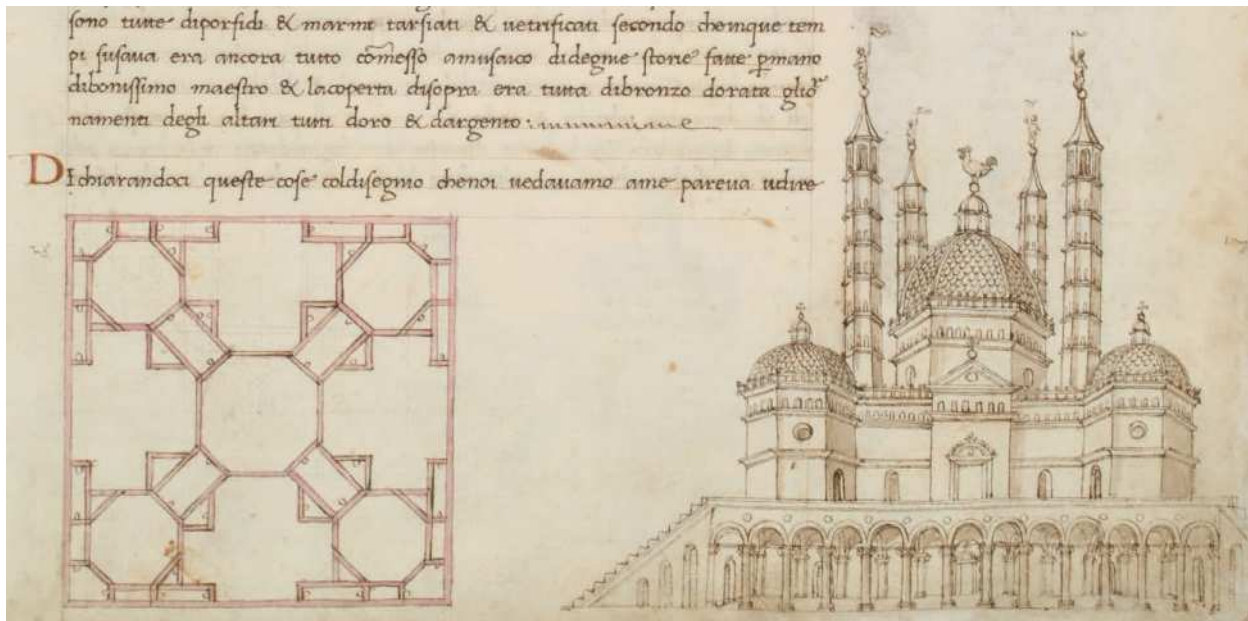 sono tutte diporfidi & marmi tarsiati & uetrificati secondo cheinque tem
pi susaua era ancora tutto cōmesso amusaico didegnie storie fatte ꝑmano
dibonissimo maestro & lacoperta disopra era tutta dibronzo dorata gliōr
namenti degli altari tutti doro & dargento
Dichiarandoci queste cose coldisegnio chenoi uedauamo ame pareua udire